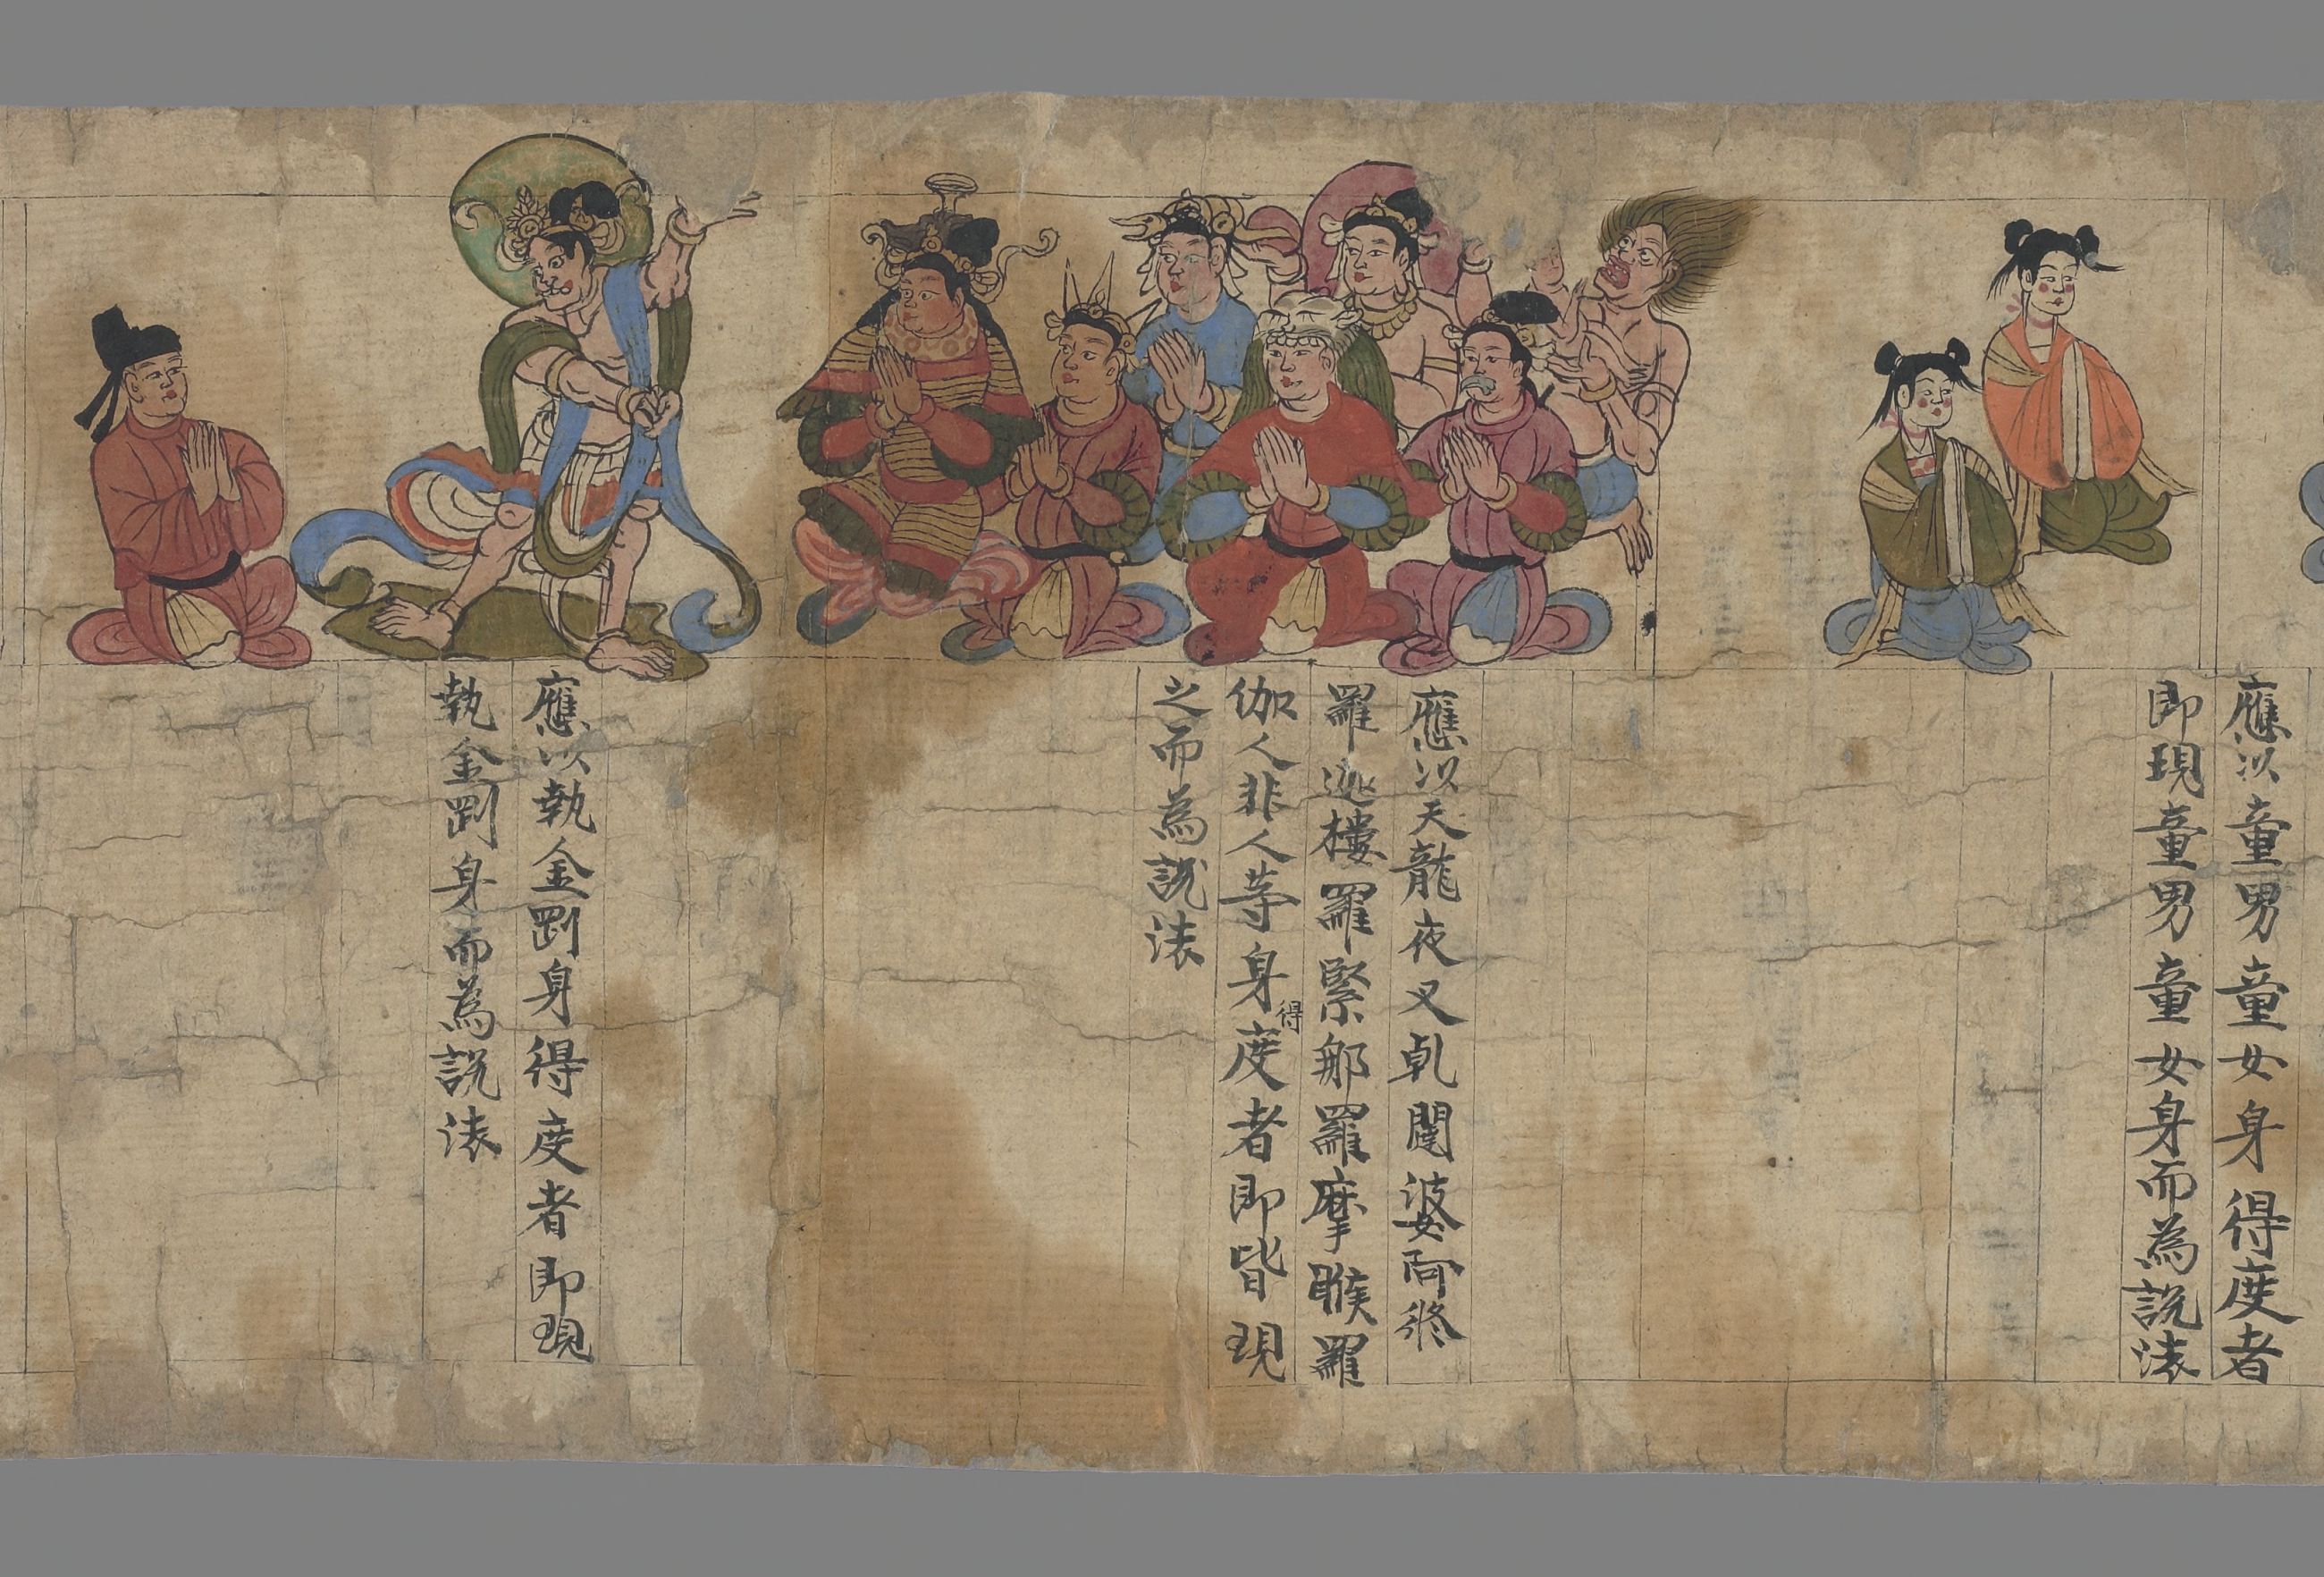 應以童男童女身得度者
即現童男童女身而為說法
應以天龍夜叉乹闥婆阿脩
羅迦樓羅緊那羅摩睺羅
伽人非人等身得度者即皆現
之而為說法
應以執金剛身得度者即現
執金剛身而為說法